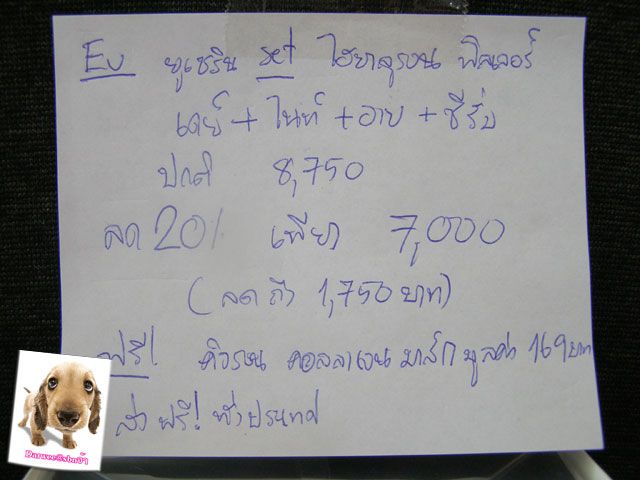 Eu ยูเซริน set ไฮยาลูรอน ฟิลเลอร์
เดย์ + ไนท์ + อาย + ซีรั่ม
ปกติ 8,750
ลด 20% เพียง 7,000
(ลดถึง 1,750 บาท)
ฟรี! คิวรอน คอลลาเจน มาส์ก มูลค่า 169 บาท
ส่งฟรี! ทั่วประเทศ